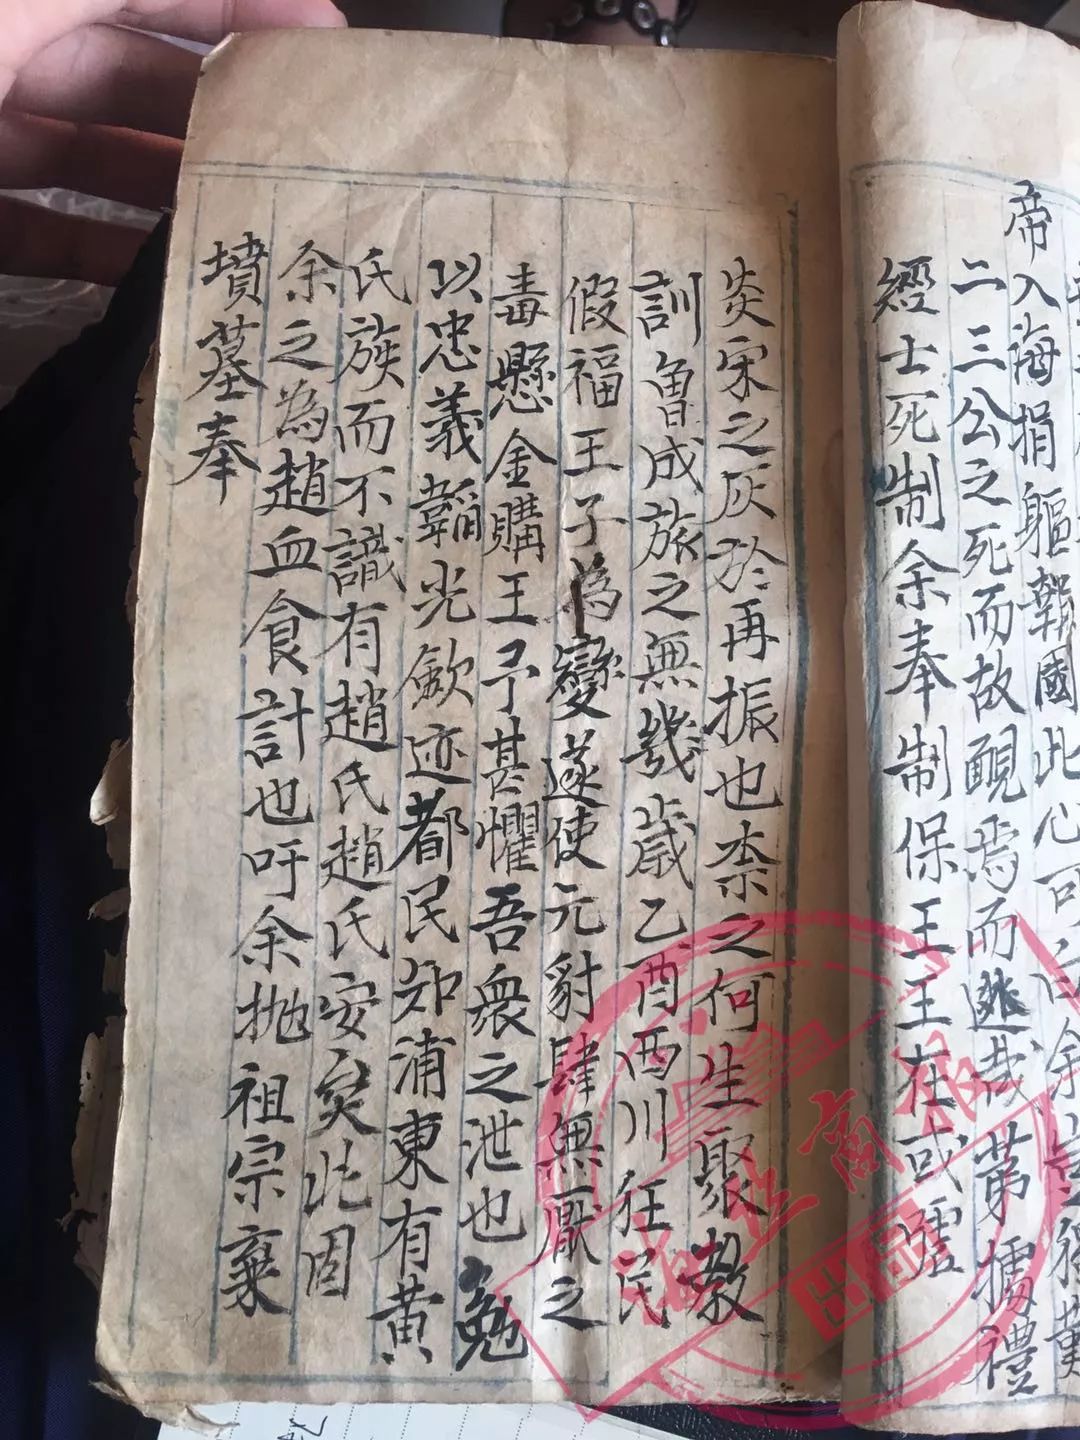 帝入海捐軀報國此心可白余豈
二三公之死而故靦焉而逃哉第攄禮
經士死制余奉制保王王在或噓
炎宋之灰於再振也柰之何生聚教
訓曾成旅之無幾歲乙酉西川狂民
假福王子為變遂使元豺肆無厭之
毒懸金購王予甚懼吾衆之泄也勉
以忠義韜光歛迹都民知浦東有黄
氏族而不識有趙氏趙氏安矣此固
余之為趙血食計也吁余抛祖宗棄
墳墓奉